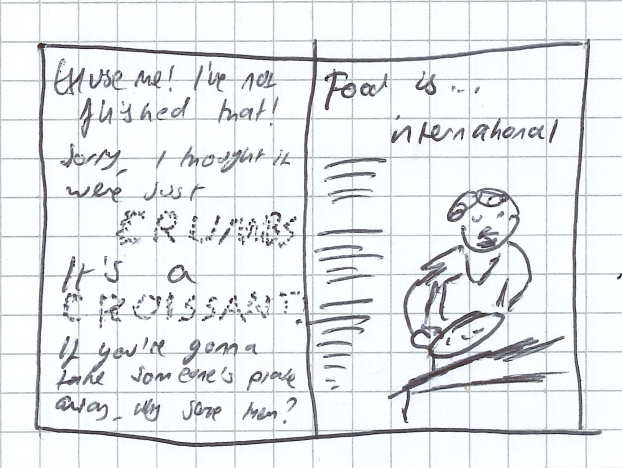 Excuse me! I've not
finished that!
Sorry, I thought it
were just
CRUMBS
It's a
CROISSANT!
If you're gonna
take someone's plate
away, why serve them?
Food is...
international